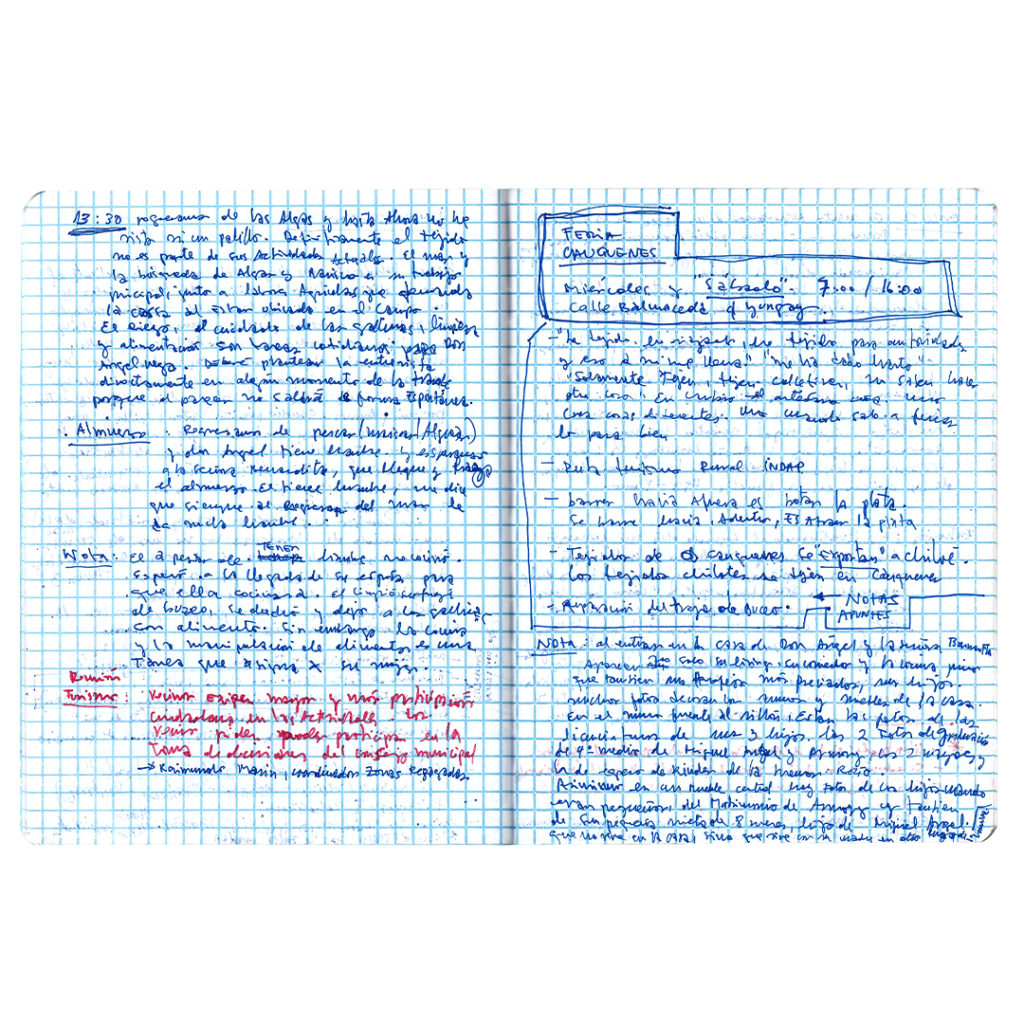 13:30 regresamos de las Algas y hasta Ahora no he
visto ni un palillo. Definitivamente el tejido
no es parte de sus Actividades Actuales. El mar y
la búsqueda de Algas y Marisco es su trabajo
principal, junto a labores Agrícolas que
la casa al estar ubicado en el Campo
El riego, el cuidado de las gallinas, limpieza
y alimentación son tareas cotidianas para Don
Angel. plantear la entrevista
directamente en algún momento de la tarde
porque al parecer no saldrá de forma Espontánea.
. Almuerzo : Regresamos de pescar (mariscar/Alguear)
y don Angel tiene hambre. y
a la cocina, que llegue y haga
el almuerzo. El tiene hambre, me dice
que siempre al regresar del mar le
da mucha hambre.
Nota: El a pesar de TENER hambre no cocinó.
Esperó a la llegada de su esposa para
que ella cocinara. El limpió
de buceo, se duchó y dejó a las gallinas
con alimento. Sin embargo la cocina
y la manipulación de alimentos es una
Tarea que asigna a su mujer.
Reunión
Turismo: Vecinos exigen mayor y más participación
ciudadana en las Actividades. Los
vecinos piden poder participar en la
Toma de decisiones del consejo municipal
→ Raimundo Marin, coordinador Zonas Rezagadas
FERIA
CAUQUENES
Miercoles y "Sábado". 7:00 / 16:00
Calle Balmaceda y Yungay.
- "He tejido, en, he tejido para autoridades
y eso a mi me llena" "me ha dado harto"
"Solamente Tejen, tejen calcetines, no saben hacer
otra cosa". En cambio el artesano crea. uno
crea cosas diferentes. Uno cuando sale a ferias
le va bien
- Ruta Turismo Rural INDAP
- barrer hacia Afuera es botar la plata.
Se barre hacia Adentro, ES Atraer la plata
- Tejidos de cauquenes se "exportan" a chiloé.
Los tejidos chilotes se tejen en Cauquenes
- Reparación del traje de Buceo.
← NOTAS
APUNTES
NOTA: al entrar en la casa de Don Ángel y la señora
Aparecen no solo su living, su comedor y la cocina, sino
que también sus trofeos más preciados, sus hijos
muchas fotos decoran los muros y muebles de la casa.
En el muro frente al sillón, Están las fotos de las
licenciaturas de sus 3 hijos. las 2 Fotos de graduación
de 4º medio de Miguel Angel y, los 2 mayores y
la de egreso de Kinder de la menor. Rocío
Asimismo en un mueble central hay fotos de los hijos cuando
eran pequeños, del Matrimonio de y también
de su pequeña nieta de 8 meses hija de Miguel Angel.
que no vive en la casa, sino que vive con su madre en otro